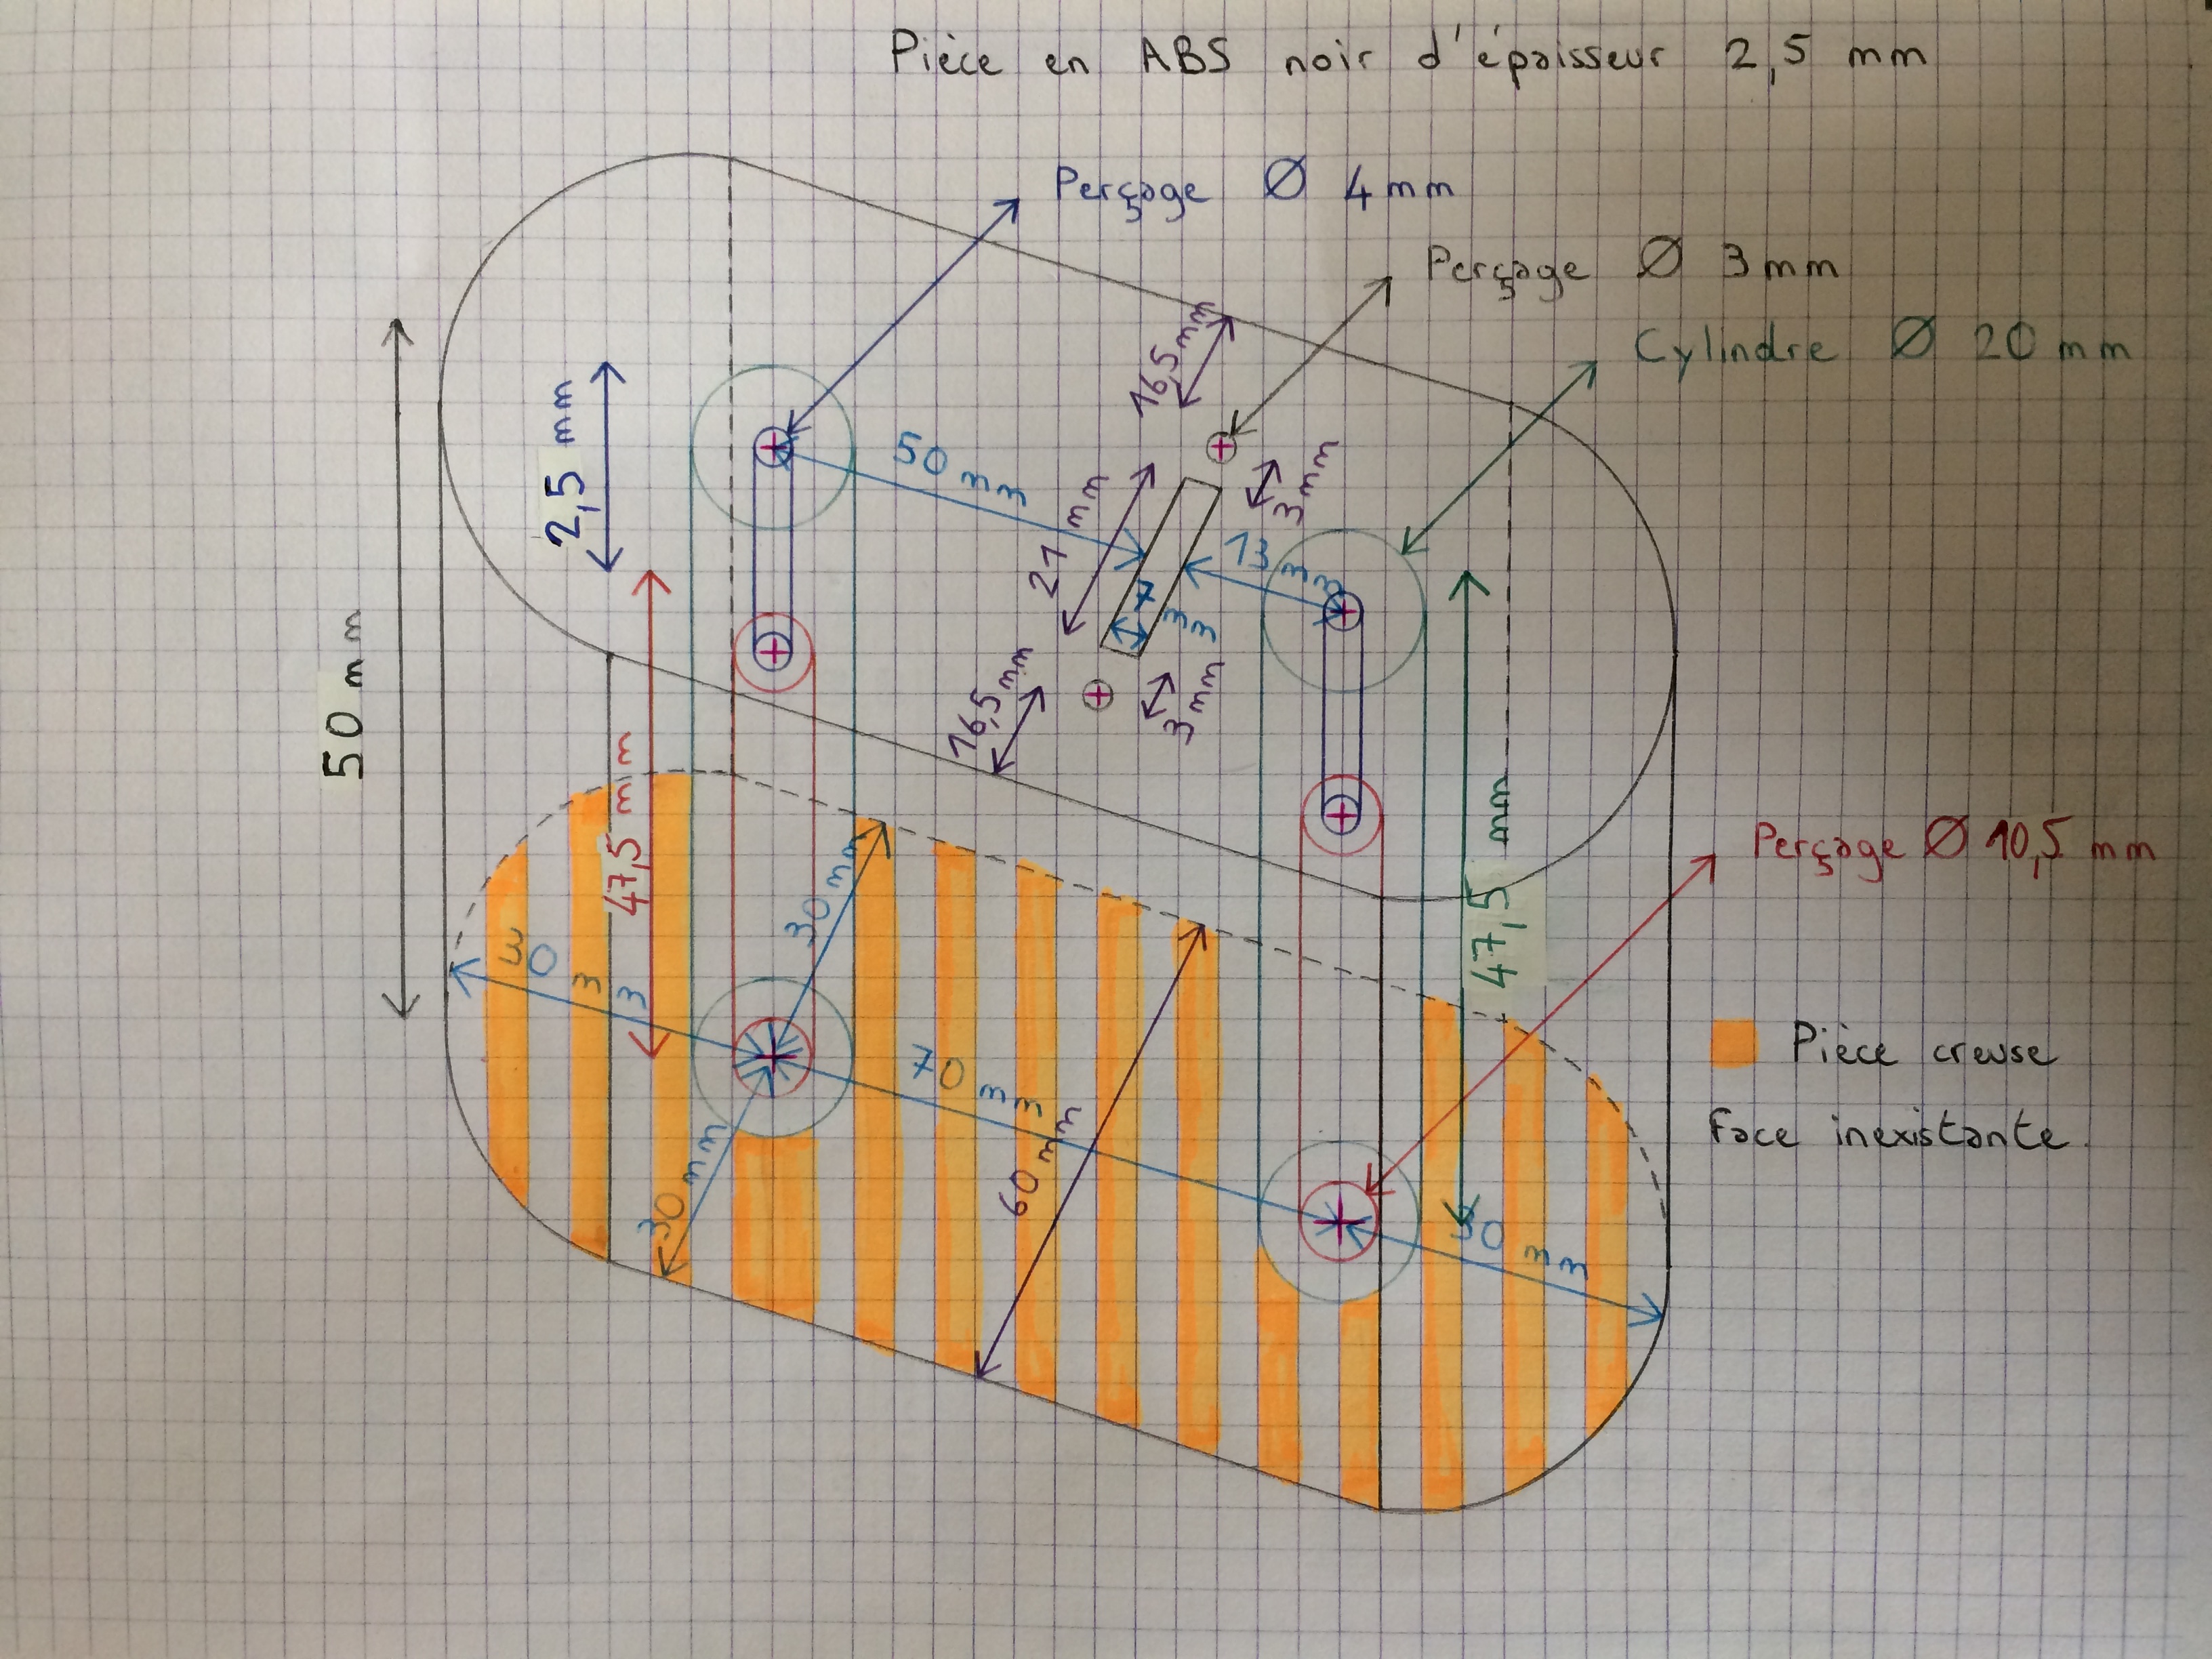 Pièce en ABS noir d'épaisseur 2,5 mm
Perçage Ø 4 mm
Perçage Ø 3 mm
Cylindre Ø 20 mm
16,5 mm
2,5 mm
50 mm
3 mm
21 mm
13 mm
7 mm
50 mm
16,5 mm
3 mm
47,5 mm
47,5 mm
Perçage Ø 10,5 mm
30 mm
30 mm
70 mm
60 mm
30 mm
30 mm
Pièce creuse
face inexistante.